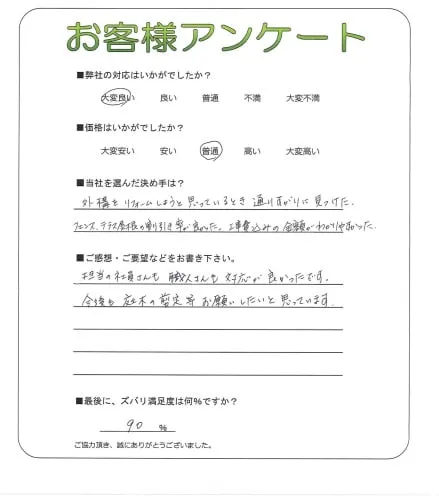 お客様アンケート
■弊社の対応はいかがでしたか？
大変良い 良い 普通 不満 大変不満
■価格はいかがでしたか？
大変安い 安い 普通 高い 大変高い
■当社を選んだ決め手は？
外構をリフォームしようと思っているとき通りすがりに見つけた。
フェンス、テラス屋根の割引き率が良かった。工事費込みの金額がわかりやすかった.
■ご感想・ご要望などをお書き下さい。
担当の社員さんも職人さんも対応が良かったです。
今後も庭木の剪定等お願いしたいと思っています。
■最後に、ズバリ満足度は何%ですか？
90 %
ご協力頂き、誠にありがとうございました。